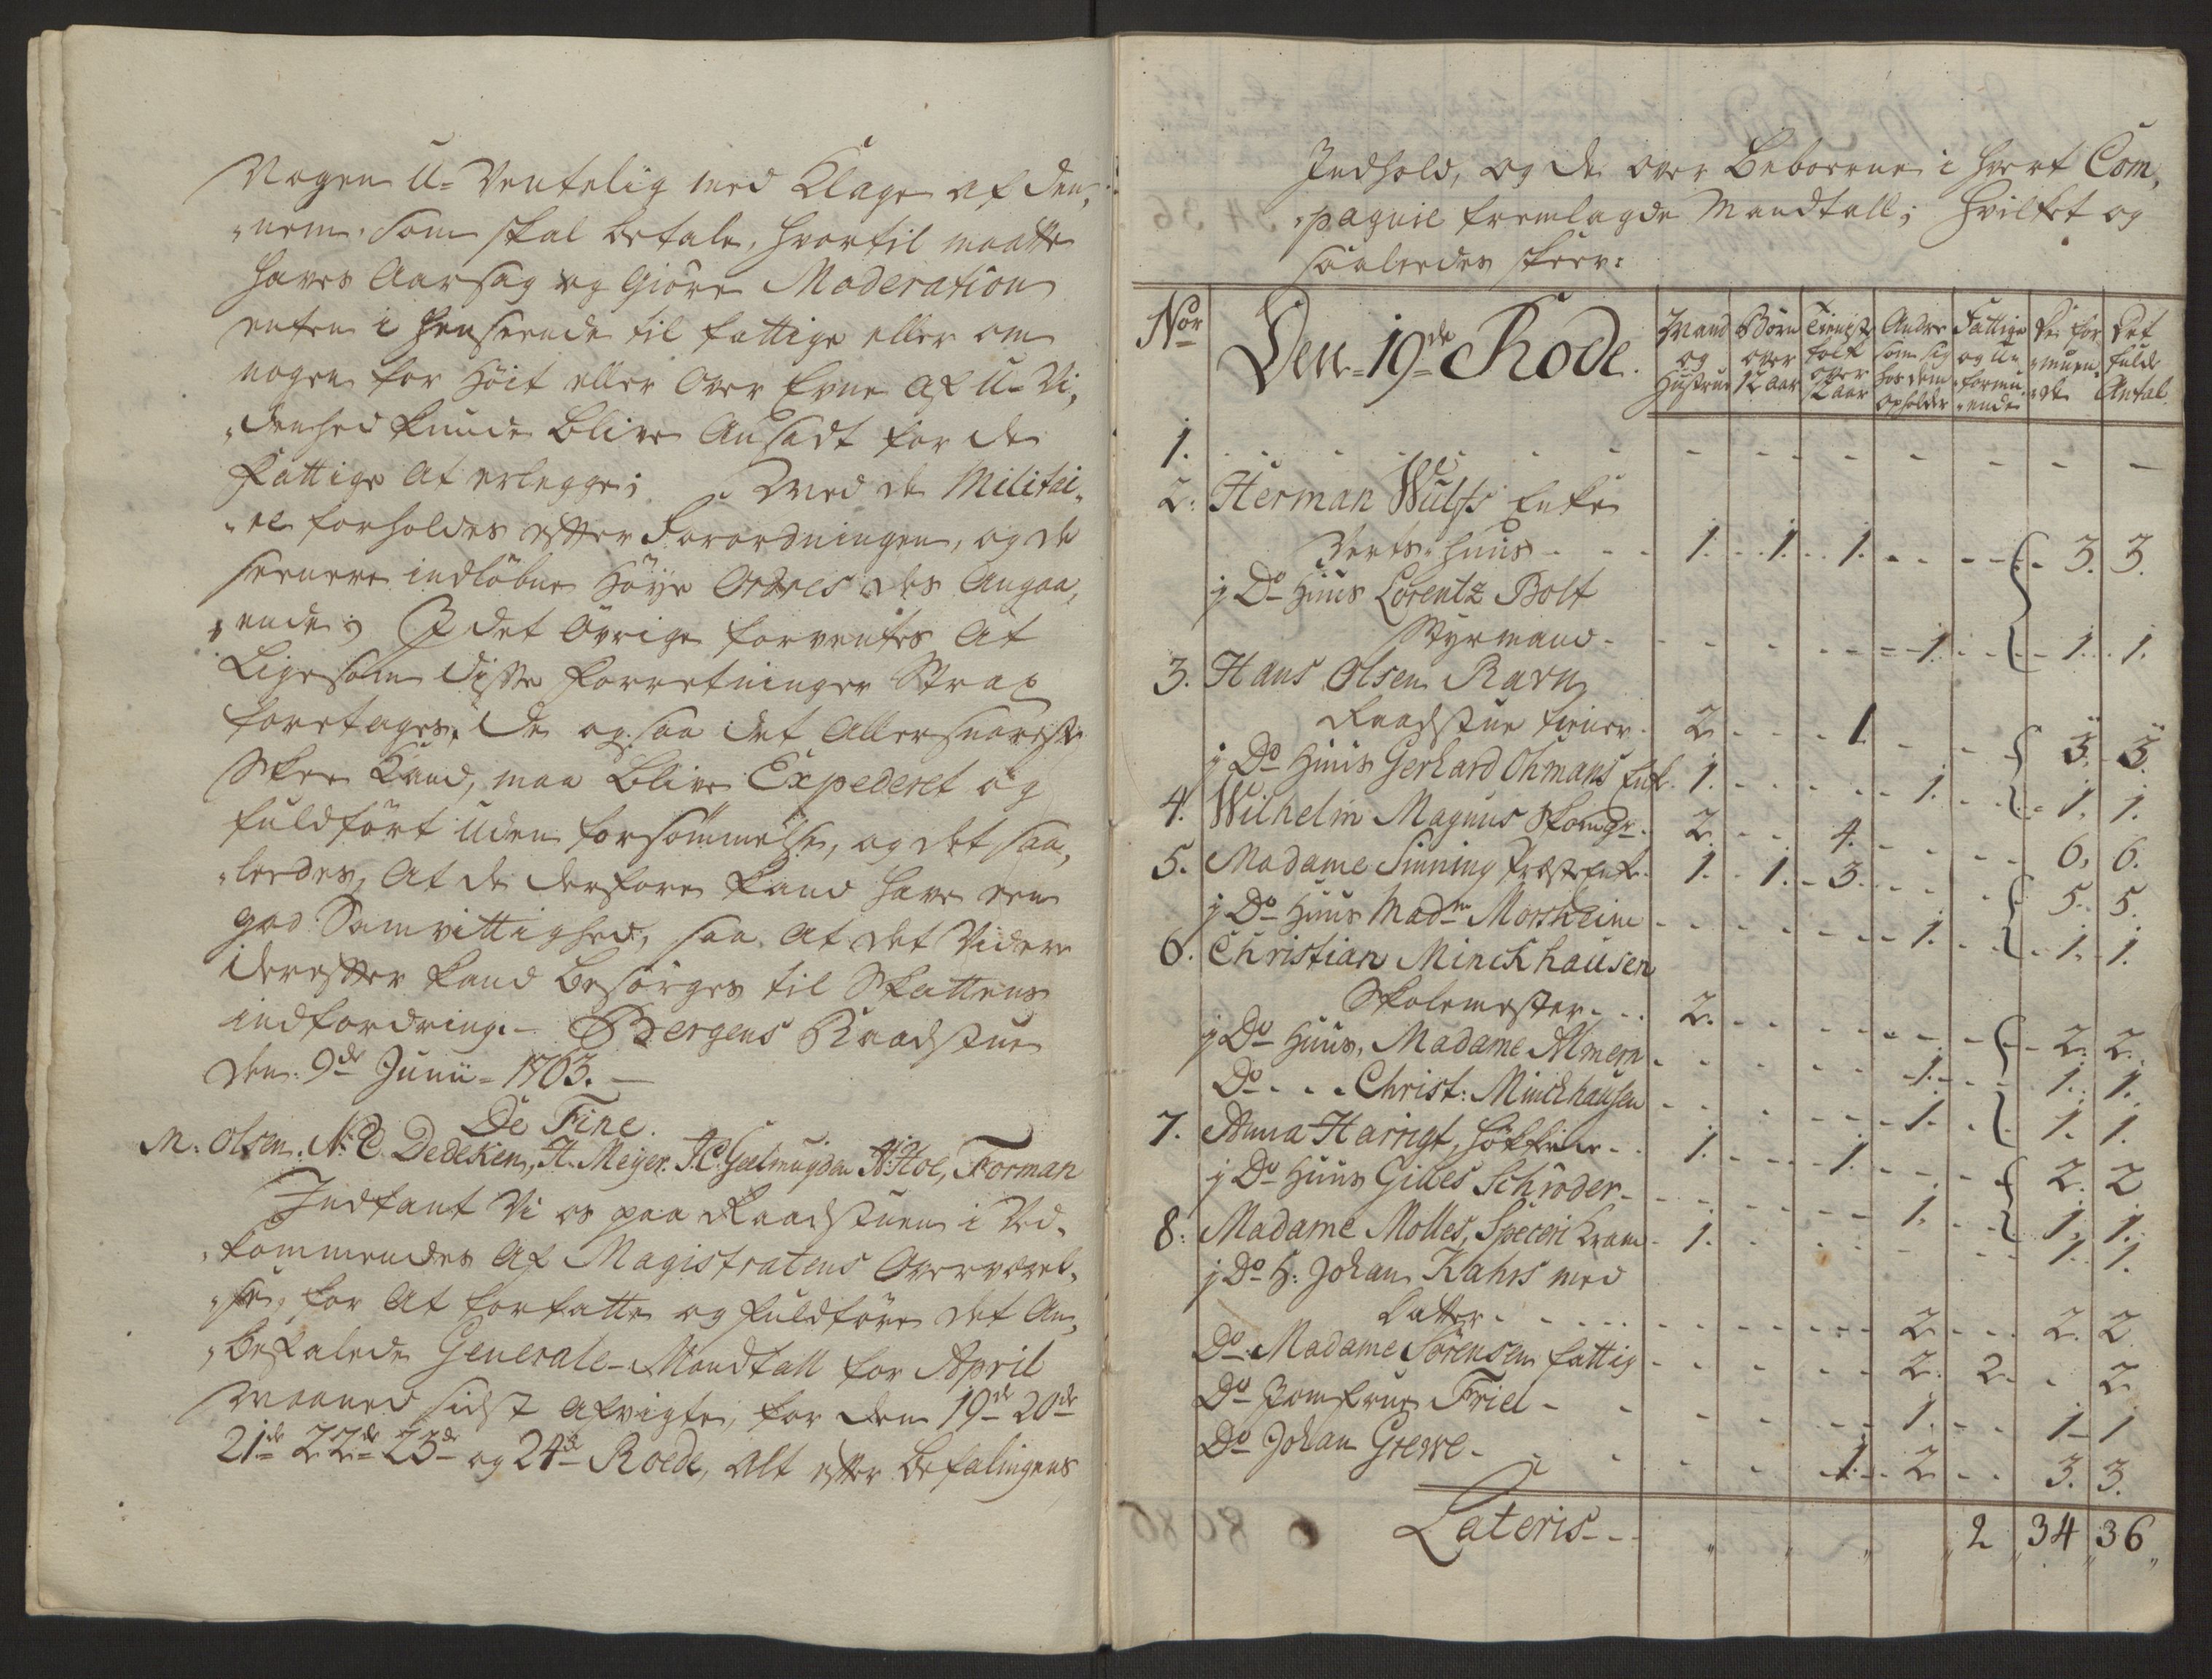 Nogen U-Ventelig med Klage af den,
„nem. Som skal betale, hvortil maatte
haves Aarsag og Giøre Moderation
enten i henseende til fattige eller om
nogen for Høit eller Over Evne Af U-Vi,
„denhed kunde blive Ansadt for de
Fattige At erlegge; Med de Militai,
„re forholdes efter Forordningen, og de
seenere indløbne Høye Ordres des Angaa,
„ende; I det Øvrige forventes At
Ligesom disse Forretninger Strax
foretages, de ogsaa det Allersnareste
Skee Kand, maa blive Expederet og
fuldført uden forsømmelse, og det saa,
„leedes, At de derfore kand have een
god Samvittighed, saa At det Videre
derefter kand besørges til Skattens
indfordring. - Bergens Raadstue
den 9de Junii - 1763. -
De Fine.
M: Olsen. N: C. Dedeken, H. Meyer. J. C. Geelmuyden A: Hoe, Forman
Indfant Vi os paa Raadstuen i Ved„
„kommendes Af Magistratens Overværel„
„se, for At forfatte og fuldføre det An„
„befalede Generale-Mandtall for April
Maaned sidst Afvigte, for den 19de 20de
21de 22de 23de og 24de Roede, Alt efter befalingens
Indhold, og de over Beboerne i hvert Com,
„pagnie fremlagde Mandtall; Hvilket og
saaleedes skeer:
Nor Den 19de Rode. Mand og Hustrue Børn over 12 Aar Tieniste folk over 12 Aar Andre som sig hos dem opholder Fattige og U„ formu „ende De for „muen„ „de Det fulde Antal
1. - - - - - - -
2: Herman Wulfs Enke
Verts-huus - - - 1. - 1. - 1. - - - - 3. 3.
j Do Huus Lorentz Bolt
Styrmand - - - - - 1. - - 1. 1.
3. Hans Olsen Ravn
Raadstue tiener - 2 - - - 1 - - 3. 3.
j Do Huus Gerhard Ohmans Enk. 1. - - - 1. - - 1. 1.
4. Wilhelm Magnus Skomgr. 2. - - 4. - - - 6. 6.
5. Madame Sinning Præsteenke. 1. - 1. - 3. - - - 5. 5.
j Do Huus Madme Morsheim - - - - 1. - - 1. 1.
6. Christian Minckhausen
Skolemester - - - 2. - - - - - 2. 2.
j Do Huus, Madame Almern - - - - 1. - - 1. 1.
Do - - - Christ: Minckhausen - - - - 1. - - 1. 1.
7. Anna Harrigt, høkker - - 1. - - 1. - - - 2. 2
j Do Huus Gilles Schrøder - - - - 1. - - 1. 1.
8: Madame Molles, Speceri kram - 1. - - - - 1. 1.
j Do H: Johan Kahrs med
datter - - - - - - - 2 - - 2. 2
Do Madame Sørensen fattig - - - - 2. 2. - 2
Do Jomfrue Friel - - - - - 1. - - 1 - 1
Do Johan Grewe - - - - - 1. - 2 - - 3. 3.
Lateris - - - 2 34 36